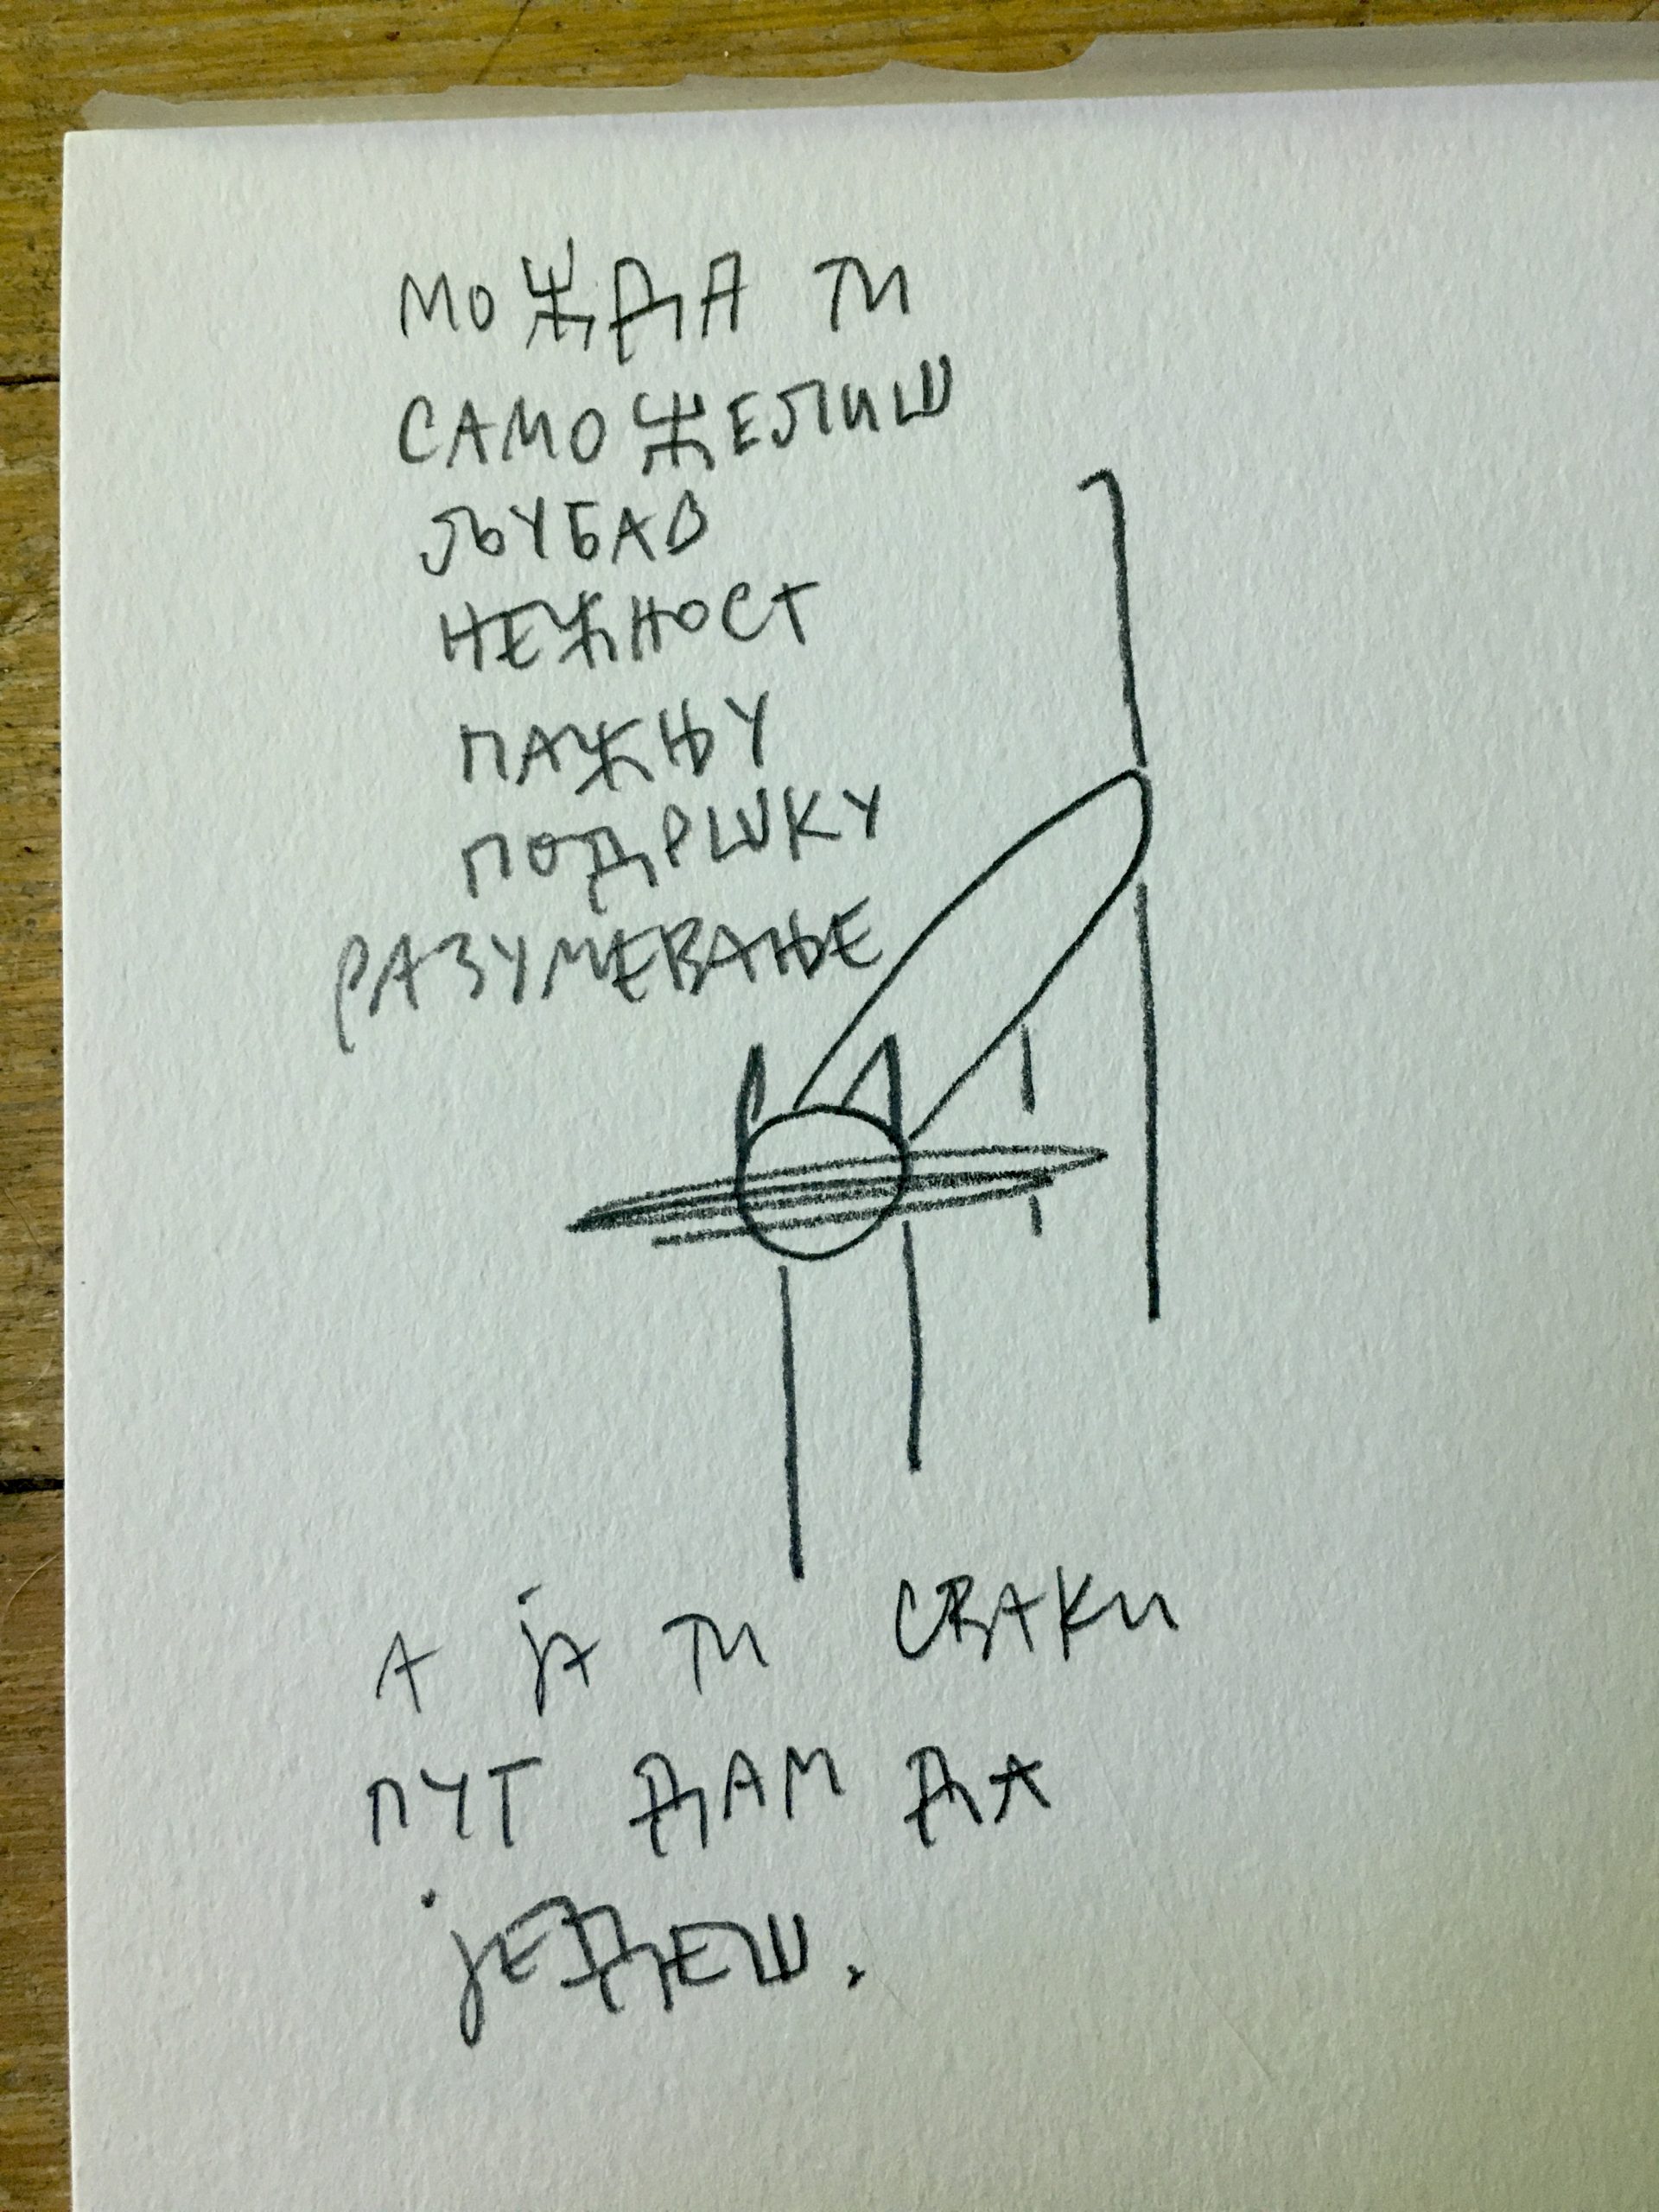 МОЖДА ТИ
САМО ЖЕЛИШ
ЉУБАВ
НЕЖНОСТ
ПАЖЊУ
ПОДРШКУ
РАЗУМЕВАЊЕ
А ЈА ТИ СВАКИ
ПУТ ДАМ ДА
ЈЕДЕШ.